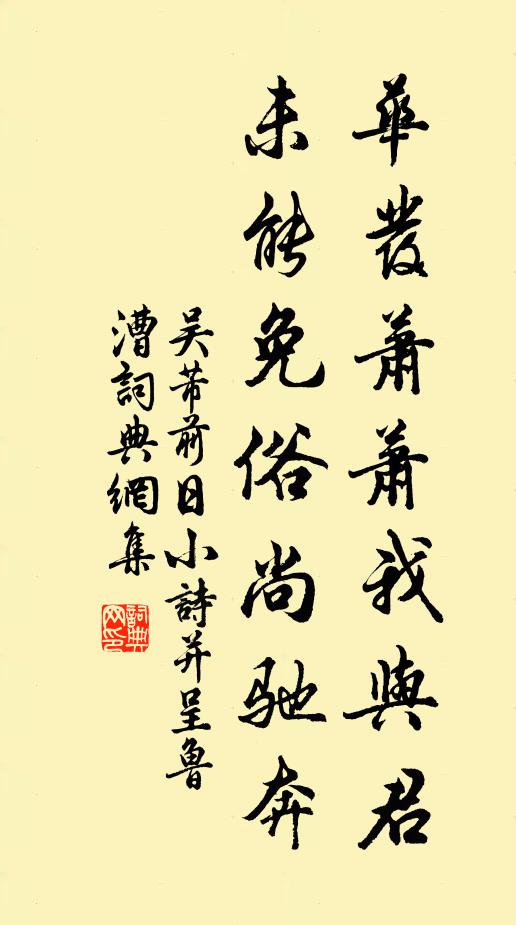 華發蕭蕭我與君
未能免俗尚馳奔
吳芾前日小詩并呈魯
漕詞典網集
詞典网印